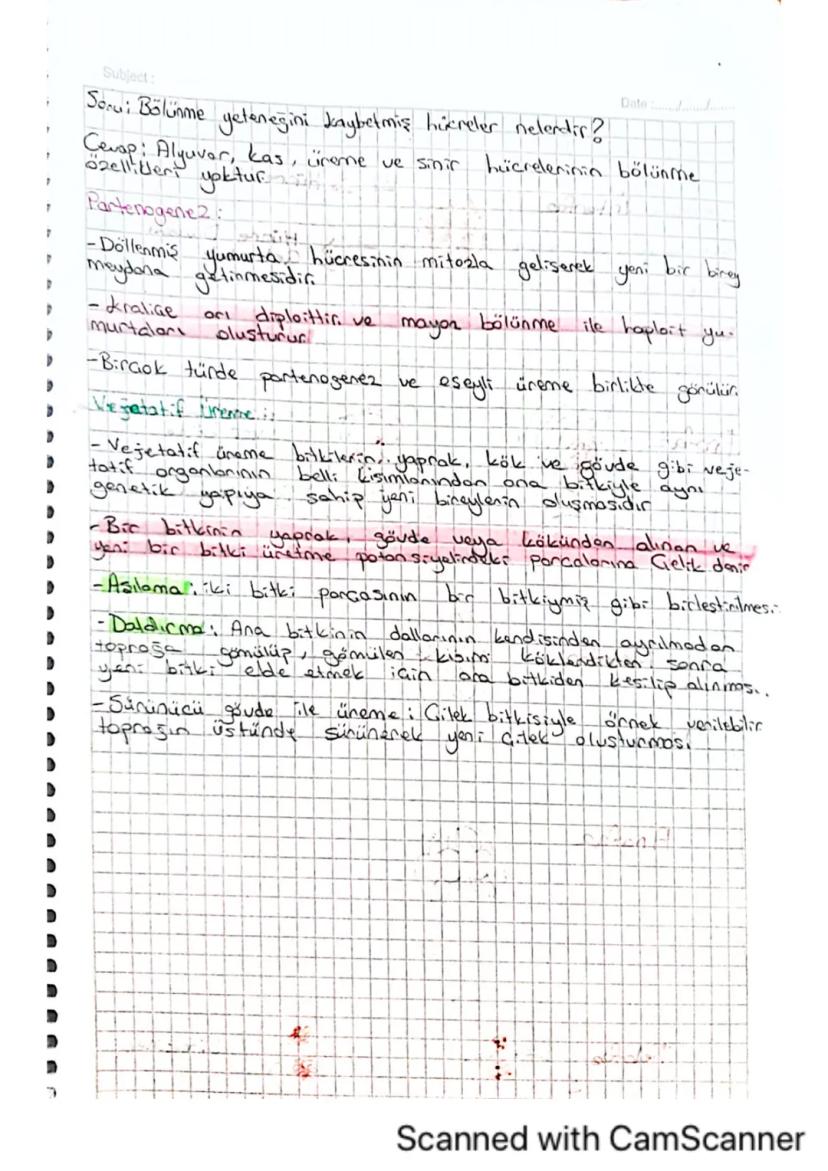 Subject:
Date:....../....../......
Soru: Bölünme yeteneğini kaybetmiş hücreler nelerdir?
Cevap: Alyuvar, kas, üreme ve sinir hücrelerinin bölünme
özellikleri yoktur.
Partenogenez:
-Döllenmiş yumurta hücresinin mitozla gelişerek yeni bir birey
meydana getirmesidir.
-Kraliçe arı diploittir. ve mayoz bölünme ile haploit yu-
murtaları oluşturur.
-Birçok türde partenogenez ve eşeyli üreme birlikte görülür.
Vejetatif Üreme:
-Vejetatif üreme bitkilerin, yaprak, kök ve gövde gibi veje-
tatif organlarının belli kısımlarından ana bitkiyle aynı
genetik yapıya sahip yeni bireylerin oluşmasıdır
-Bir bitkinin yaprak, gövde veya kökünden alınan ve
yeni bir bitki üretme potansiyelindeki parçalarına Çelik denir
-Aşılama: iki bitki parçasının bir bitkiymiş gibi birleştirilmesi.
-Daldırma: Ana bitkinin dallarının kendisinden ayrılmadan
toprağa gömülüp, gömülen kısım köklendikten sonra
yeni bitki elde etmek için ana bitkiden kesilip alınması.
-Sürünücü gövde ile üreme: Çilek bitkisiyle örnek verilebilir
toprağın üstünde sürünerek yeni çilek oluşturması.
Scanned with CamScanner